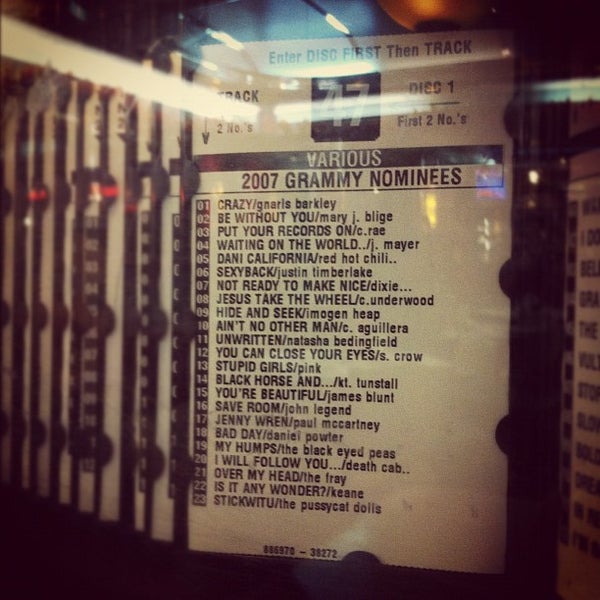 Enter DISC FIRST Then TRACK
TRACK
47
DISC 1
2 No.'s
First 2 No.'s
VARIOUS
2007 GRAMMY NOMINEES
01 CRAZY/gnarls barkley
02 BE WITHOUT YOU/mary j. blige
03 PUT YOUR RECORDS ON/c.rae
04 WAITING ON THE WORLD../j. mayer
05 DANI CALIFORNIA/red hot chili..
06 SEXYBACK/justin timberlake
07 NOT READY TO MAKE NICE/dixie...
08 JESUS TAKE THE WHEEL/c.underwood
09 HIDE AND SEEK/imogen heap
10 AIN'T NO OTHER MAN/c. aguillera
11 UNWRITTEN/natasha bedingfield
12 YOU CAN CLOSE YOUR EYES/s. crow
13 STUPID GIRLS/pink
14 BLACK HORSE AND.../kt. tunstall
15 YOU'RE BEAUTIFUL/james blunt
16 SAVE ROOM/john legend
17 JENNY WREN/paul mccartney
18 BAD DAY/daniel powter
19 MY HUMPS/the black eyed peas
20 I WILL FOLLOW YOU.../death cab..
21 OVER MY HEAD/the fray
22 IS IT ANY WONDER?/keane
23 STICKWITU/the pussycat dolls
886970 - 38272